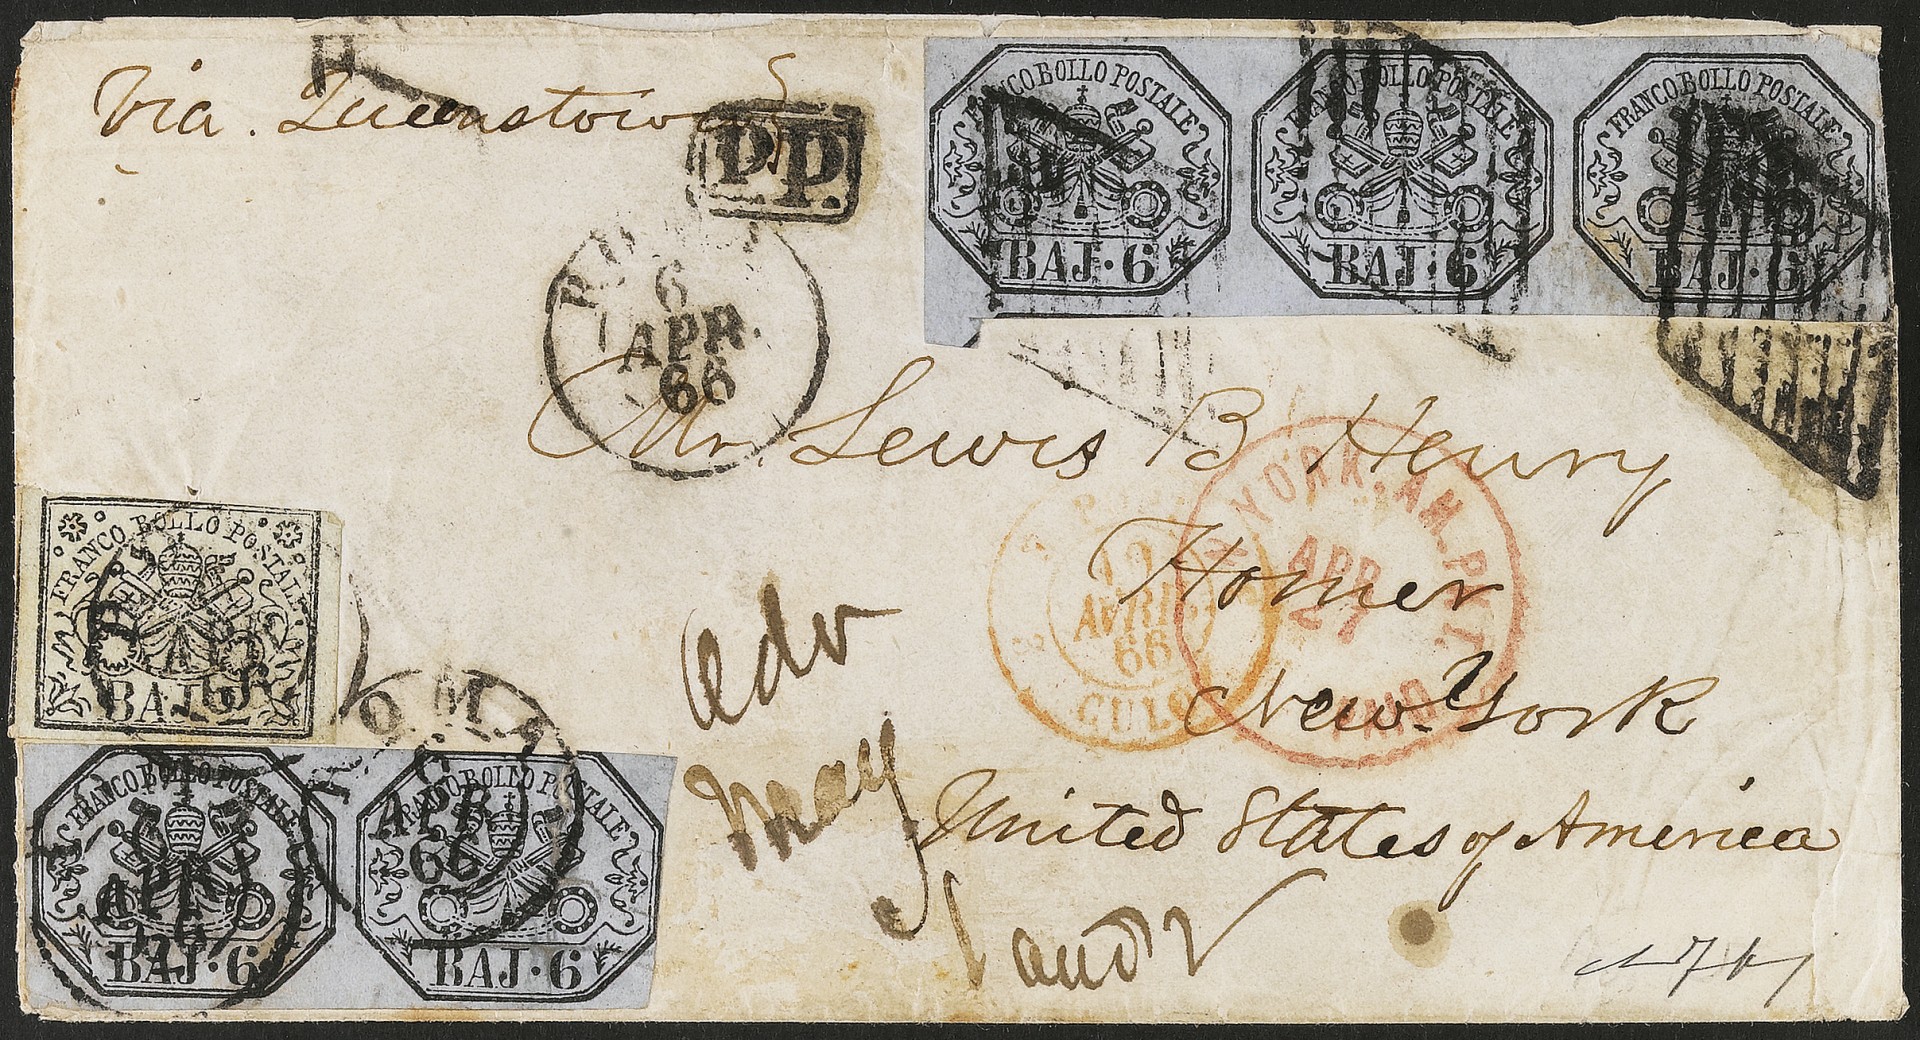 Via. Queenstown
P.P.
FRANCO BOLLO POSTALE
BAJ·6
FRANCO BOLLO POSTALE
BAJ·6
FRANCO BOLLO POSTALE
BAJ·6
ROMA
6
APR.
66
Mr. Lewis B Henry
Homer
New-York
United States of America
N. YORK. AM. PKT.
APR
21
PAID
12
AVRIL
66
CULOZ
Adv
May
1 and
FRANCO BOLLO POSTALE
BAJ. 2
ROMA
6
APR
66
FRANCO BOLLO POSTALE
BAJ·6
FRANCO BOLLO POSTALE
BAJ·6
APR
66